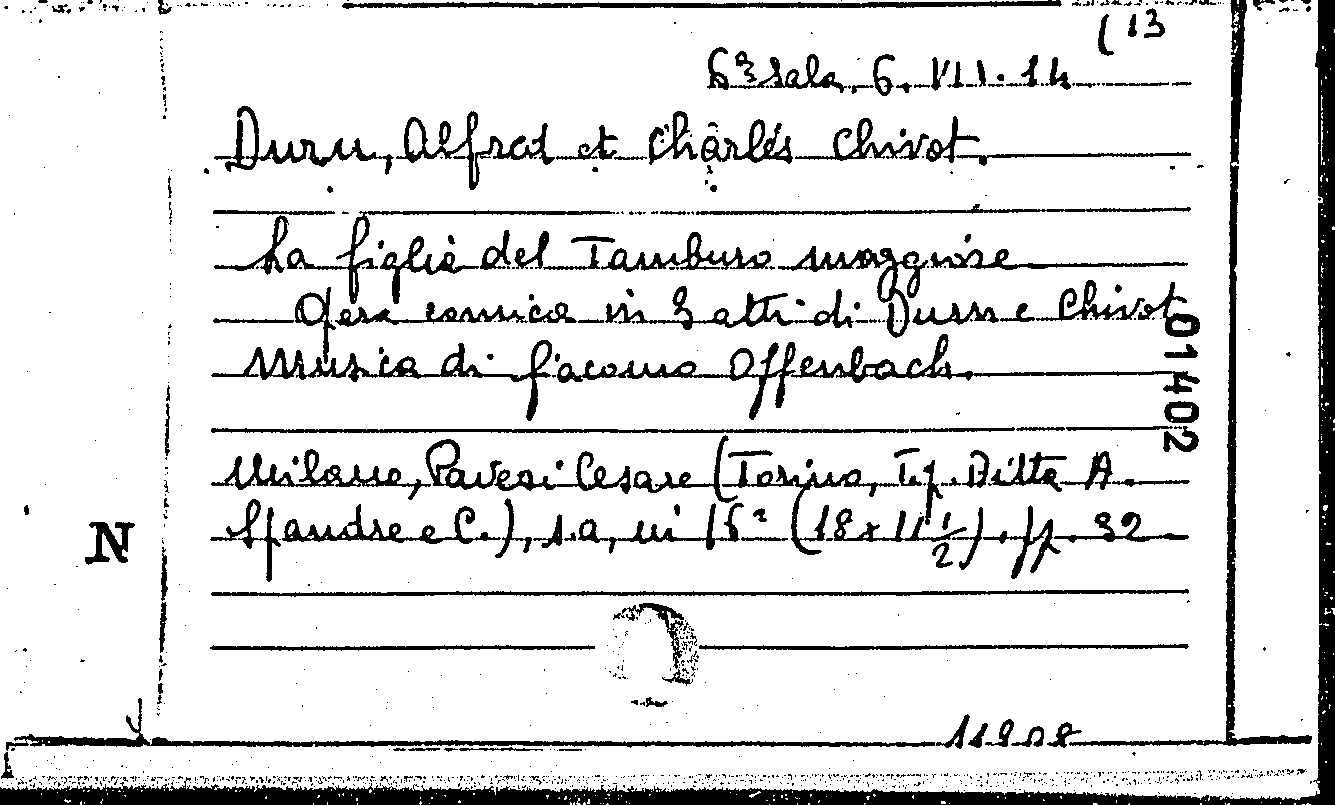 (13
6ª Sala. 6. VII. 14
Duru, Alfred et Charles Chivot.
La figlia del Tamburo maggiore
Opera comica in 3 atti di Duru e Chivot
Musica di Giacomo Offenbach.
01402
Milano, Pavesi Cesare (Torino, Tip. Ditta A.
Spandre e C.), s.a, in 16º (18 x 11 1/2). pp. 32
N
11908